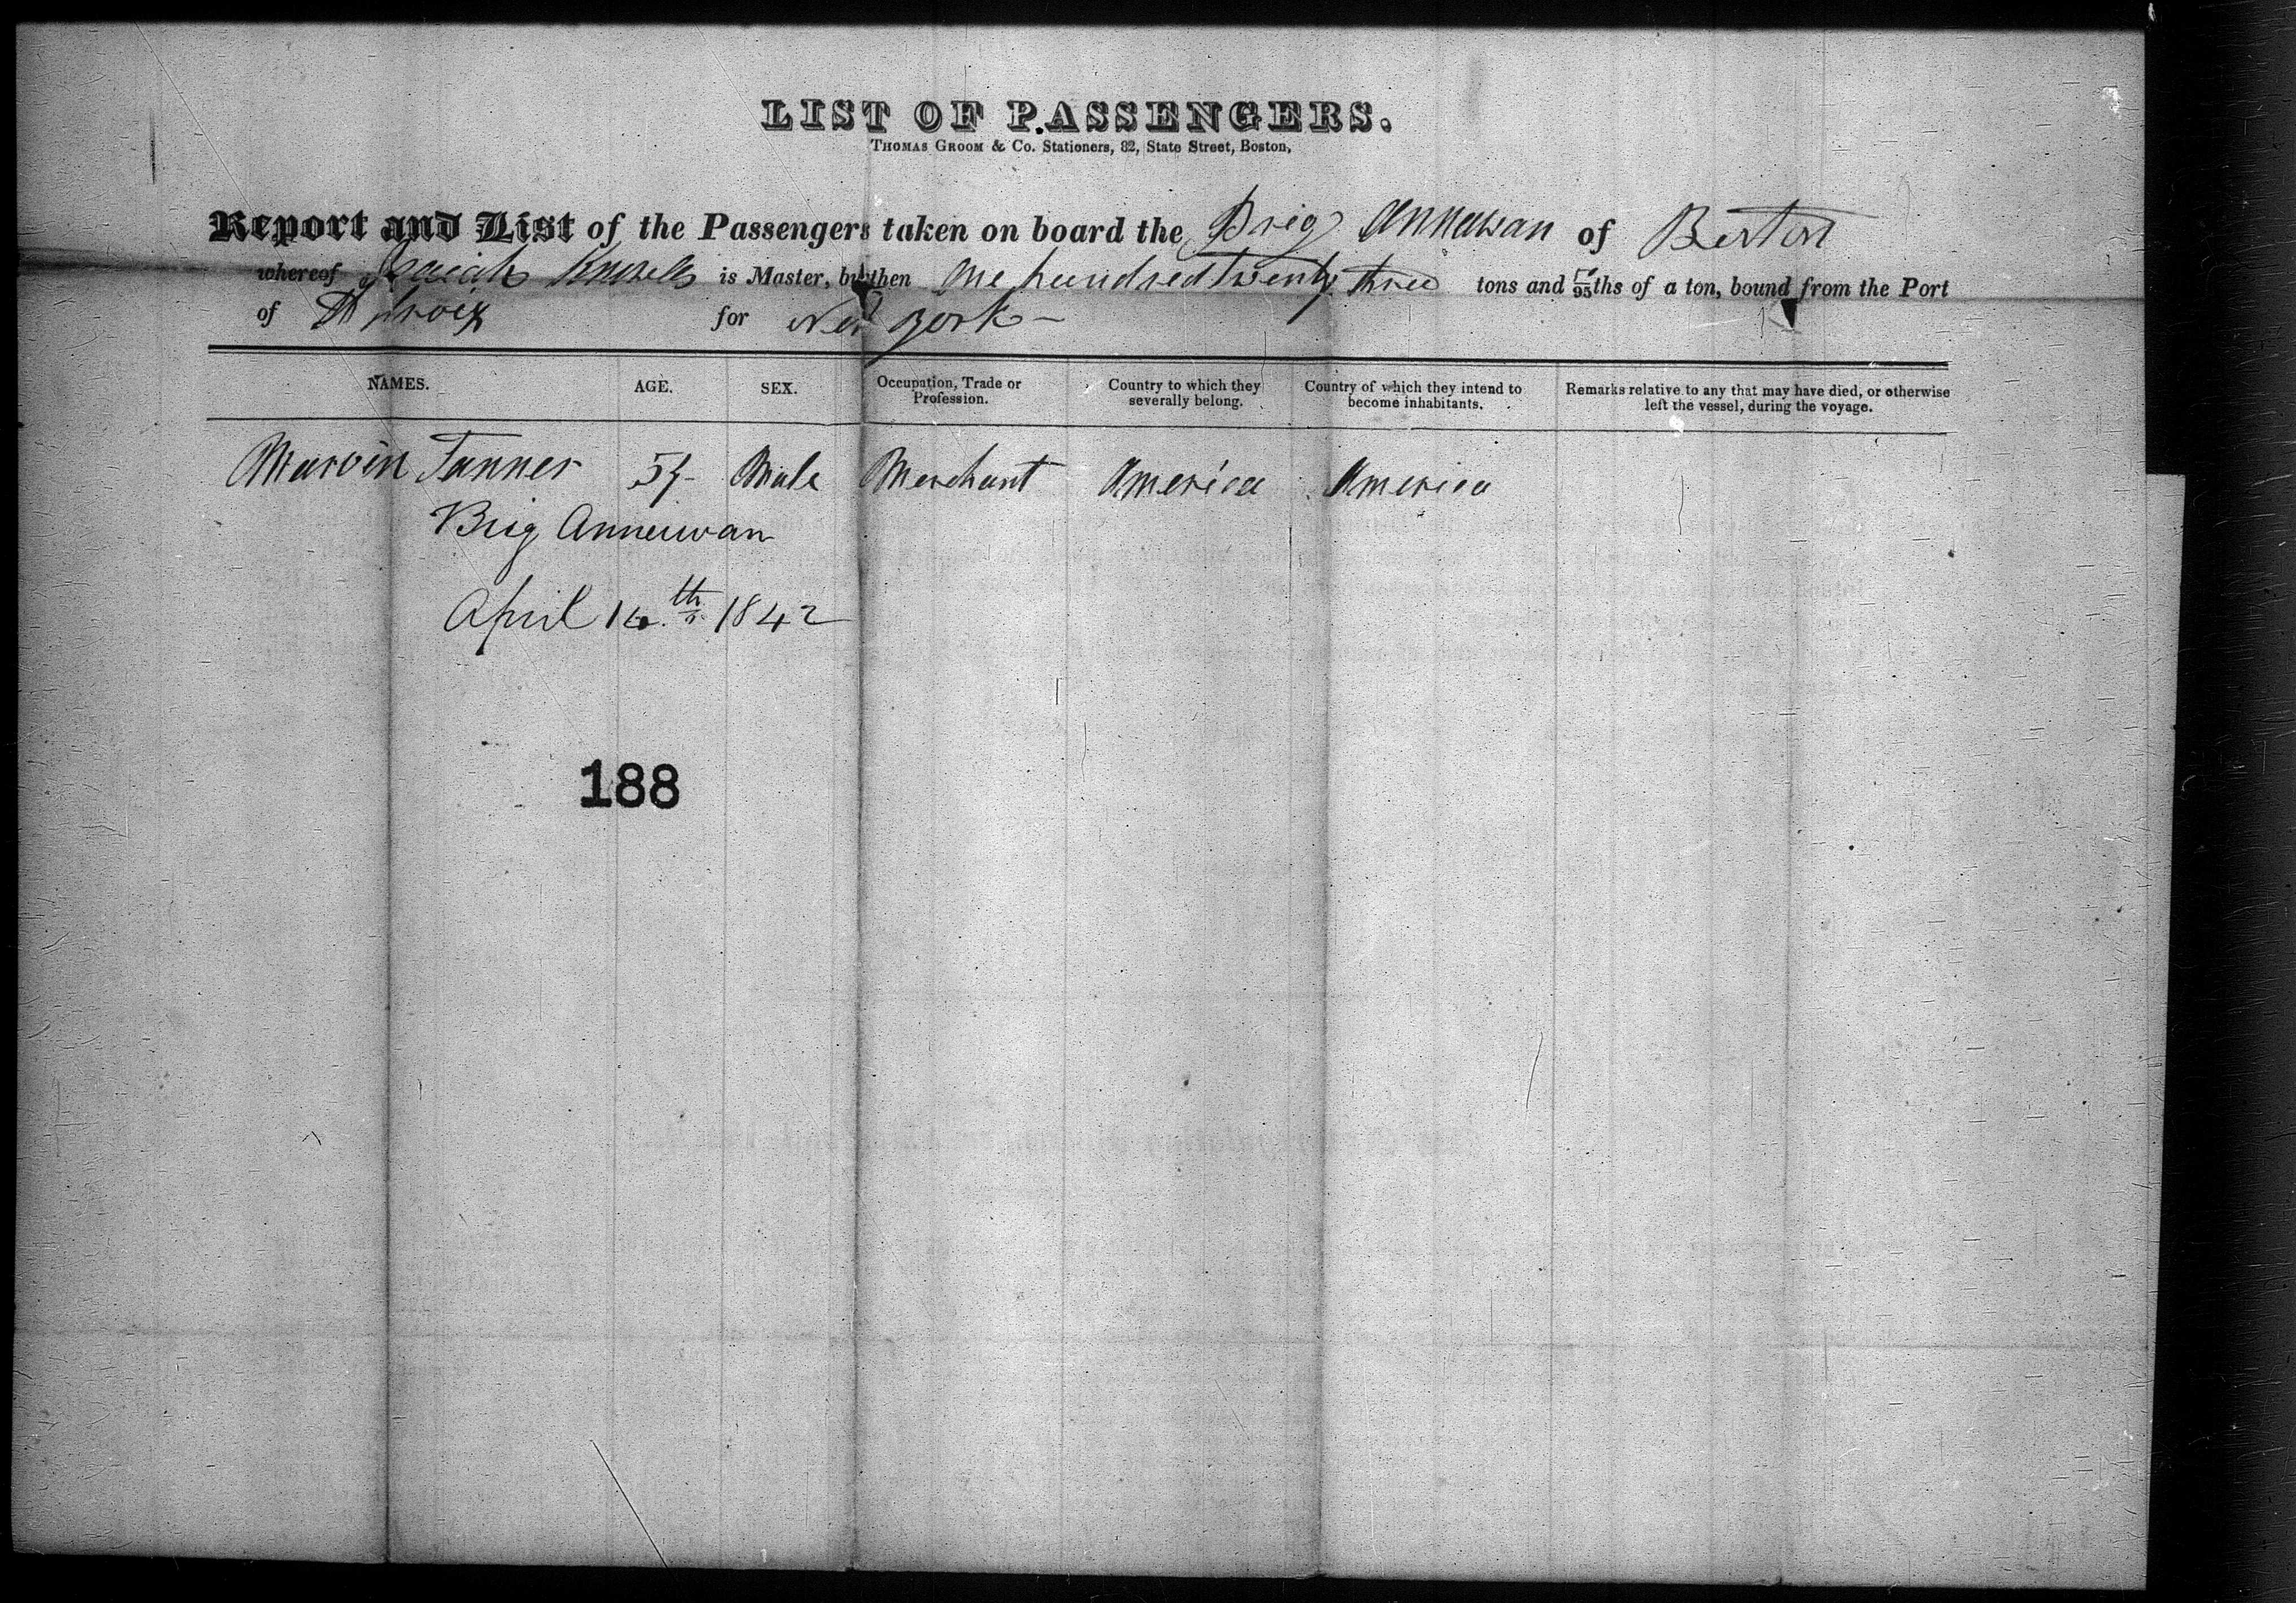 LIST OF PASSENGERS.
THOMAS GROOM & Co. Stationers, 82, State Street, Boston,
Report and List of the Passengers taken on board the Brig Annawan of Boston
whereof Isaiah Knowles is Master, burthen One hundred twenty three tons and /95ths of a ton, bound from the Port
of St Croix for New York
NAMES. AGE. SEX. Occupation, Trade or Profession. Country to which they severally belong. Country of which they intend to become inhabitants. Remarks relative to any that may have died, or otherwise left the vessel, during the voyage.
Marvin Tanner Male Merchant America America
Brig Annewan
April 16th 1842
188